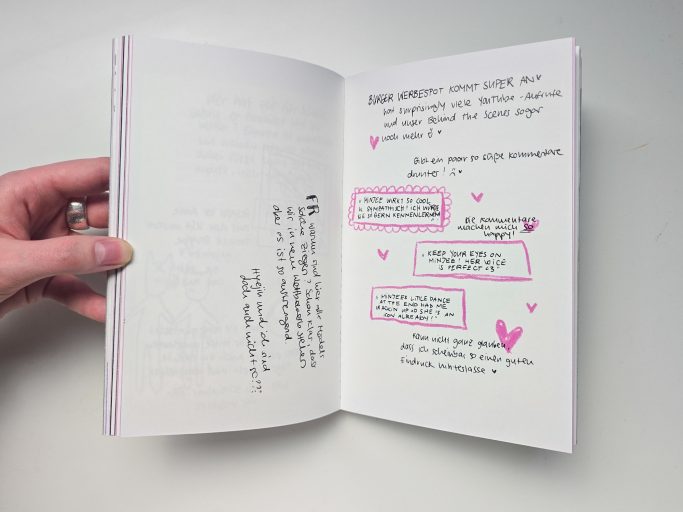 FR warum sind hier alle Models
solche Ziegen? Schon klar, dass
wir in neuen Wettbewerb stehen
aber es ist so anstrengend
Hyejin und ich sind
doch auch nicht so???
BURGER WERBESPOT KOMMT SUPER AN ♥
hat surprisingly viele YouTube-Aufrufe
und unser Behind the Scenes sogar
noch mehr ♥
Gibt ein paar so süße Kommentare
drunter! ♥
MINJEE WIRKT SO COOL
& SYMPATHISCH! ICH WÜRDE
SIE SO GERN KENNENLERNEN
Die Kommentare
machen mich so
happy!
KEEP YOUR EYES ON
MINJEE! HER VOICE
IS PERFECT <3
MINJEES LITTLE DANCE
AT THE END HAD ME
SHE'S AN
ICON ALREADY!!
Kann nicht ganz glauben,
dass ich scheinbar so einen guten
Eindruck hinterlasse ♥